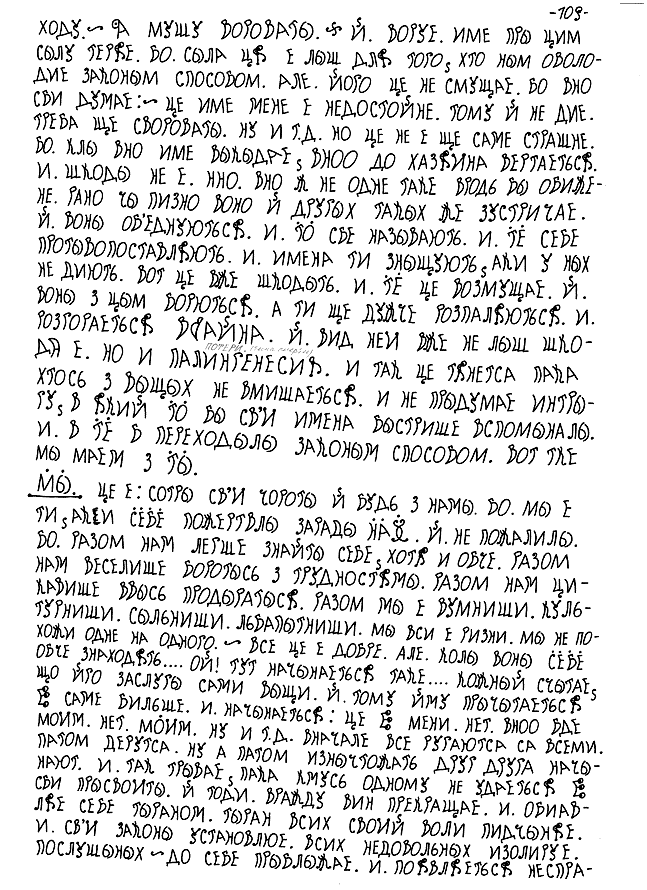 -109-
ХОДУ.~ Я МУШУ ВОРОВАТЫ.~ Й. ВОРУЕ. ИМЕ ПРЫ ЦИМ
СЫЛУ ТЕРЯЕ. БО. СЫЛА ЦЯ Е ЛЫШ ДЛЯ ТОГО, ХТО НЫМ ОВОЛО-
ДИЕ ЗАКОНЫМ СПОСОБОМ. АЛЕ. ЙОГО ЦЕ НЕ СМУЩАЕ. БО ВНО
СВИ ДУМАЕ:~ ЦЕ ИМЕ МЕНЕ Е НЕДОСТОЙНЕ. ТОМУ Й НЕ ДИЕ.
ТРЕБА ЩЕ СВОРОВАТЫ. НУ И Т.Д. НО ЦЕ НЕ Е ЩЕ САМЕ СТРАШНЕ.
БО. КЛЫ ВНО ИМЕ ВЫКЫДАЕ, ВНОО ДО ХАЗЯИНА ВЕРТАЕТЬСЯ.
И. ШКОДЫ НЕ Е. ИНО. ВНО Ж НЕ ОДНЕ ТАКЕ ВРОДЬ БЫ ОБИЖЕ-
НЕ. РАНО ЧЫ ПИЗНО ВОНО Й ДРУГЫХ ТАКЫХ ЖЕ ЗУСТРИЧАЕ.
Й. ВОНЫ ОБ'ЕДНУЮТЬСЯ. И. ТЫ СЕБЕ НАЗЫВАЮТЬ. И. ТЕ СЕБЕ
ПРОТЫВОПОСТАВЛЯЮТЬ. И. ИМЕНА ТИ ЗНЫЩУЮТЬ, АКИ У НЫХ
НЕ ДИЮТЬ. ВОТ ЦЕ ВЖЕ ШКОДЫТЬ. И. ТЕ ЦЕ ВОЗМУЩАЕ. Й.
ВОНЫ З ЦЫМ БОРЮТЬСЯ. А ТИ ЩЕ ДУЖЧЕ РОЗПАЛЯЮТЬСЯ. И.
РОЗГОРАЕТЬСЯ ВРАЙИНА. Й. ВИД НЕИ ВЖЕ НЕ ЛЫШ ШКО-
ПОТЕРИ
ДА Е. НО И ПАЛИНГЕНЕСИЯ. И ТАК ЦЕ ТЯНЕТСА ПАКА
ХТОСЬ З ВЫЩЫХ НЕ ВМИШАЕТЬСЯ. И НЕ ПРЫДУМАЕ ИНТРЫ-
ГУ, В ЯКИЙ ТЫ БЫ СВ'И ИМЕНА БЫСТРИЩЕ ВСПОМЫНАЛЫ.
И. В ТЕ В ПЕРЕХОДЫЛЫ ЗАКОНЫМ СПОСОБОМ. ВОТ ТКЕ
МЫ МАЕМ З ТЫ.
МЫ. ЦЕ Е: СОТРЫ СВ'И ЧОРОТЫ Й БУДЬ З НАМЫ. БО. МЫ Е
ТИ, АКИ СЕБЕ ПОЖЕРТВЛЫ ЗАРАДЫ НАС. Й. НЕ ПОЖАЛИЛЫ.
БО. РАЗОМ НАМ ЛЕГШЕ ЗНАЙТЫ СЕБЕ, ХОТЯ И ОБЧЕ. РАЗОМ
НАМ ВЕСЕЛИШЕ БОРОТЫСЬ З ТРУДНОСТЯМЫ. РАЗОМ НАМ ЦИ-
КАВИШЕ ВВЫСЬ ПРОДЫРАТЫСЯ. РАЗОМ МЫ Е ВУМНИШИ. КУЛЬ-
ТУРНИШИ. СЫЛЬНИШИ. ЛЬВАПЫТНИШИ. МЫ ВСИ Е РИЗНИ. МЫ НЕ ПО-
ХОЖИ ОДНЕ НА ОДНОГО.~ ВСЕ ЦЕ Е ДОБРЕ. АЛЕ. КОЛЫ ВОНЫ СЕБЕ
ОБЧЕ ЗНАХОДЯТЬ.... ОЙ! ТУТ НАЧЫНАЕТЬСЯ ТАКЕ.... КОЖНЫЙ СЧЫТАЕ,
ЩО ЙГО ЗАСЛУГЫ САМИ ВЫЩИ. Й. ТОМУ ЙМУ ПРЫЧЫТАЕТЬСЯ
САМЕ БИЛЬШЕ. И. НАЧЫНАЕТЬСЯ: ЦЕ МЕНИ. НЕТ. ВНОО БДЕ
МОИМ. НЕТ. МОИМ. НУ И Т.Д. ВНАЧАЛЕ ВСЕ РУГАЮТСА СА ВСЕМИ.
ПАТОМ ДЕРУТСА. НУ А ПАТОМ ИЗНЫЧТОЖАТЬ ДРУГ ДРУГА НАЧЫ-
НАЮТ. И. ТАК ТРЫВАЕ, ПАКА КМУСЬ ОДНОМУ НЕ УДАЕТЬСЯ
СВИ ПРЫСВОИТЫ. Й ТОДИ. ВРАЖДУ ВИН ПРЕКРАЩАЕ. И. ОБИАВ-
ЛЯЕ СЕБЕ ТЫРАНОМ. ТЫРАН ВСИХ СВОИЙ ВОЛИ ПИДЧЫНЯЕ.
И. СВ'И ЗАКОНЫ УСТАНОВЛЮЕ. ВСИХ НЕДОВОЛЬНЫХ ИЗОЛИРУЕ.
ПОСЛУШНЫХ ~ ДО СЕБЕ ПРЫБЛЫЖАЕ. И. ПОЯВЛЯЕТЬСЯ НЕСПРА-